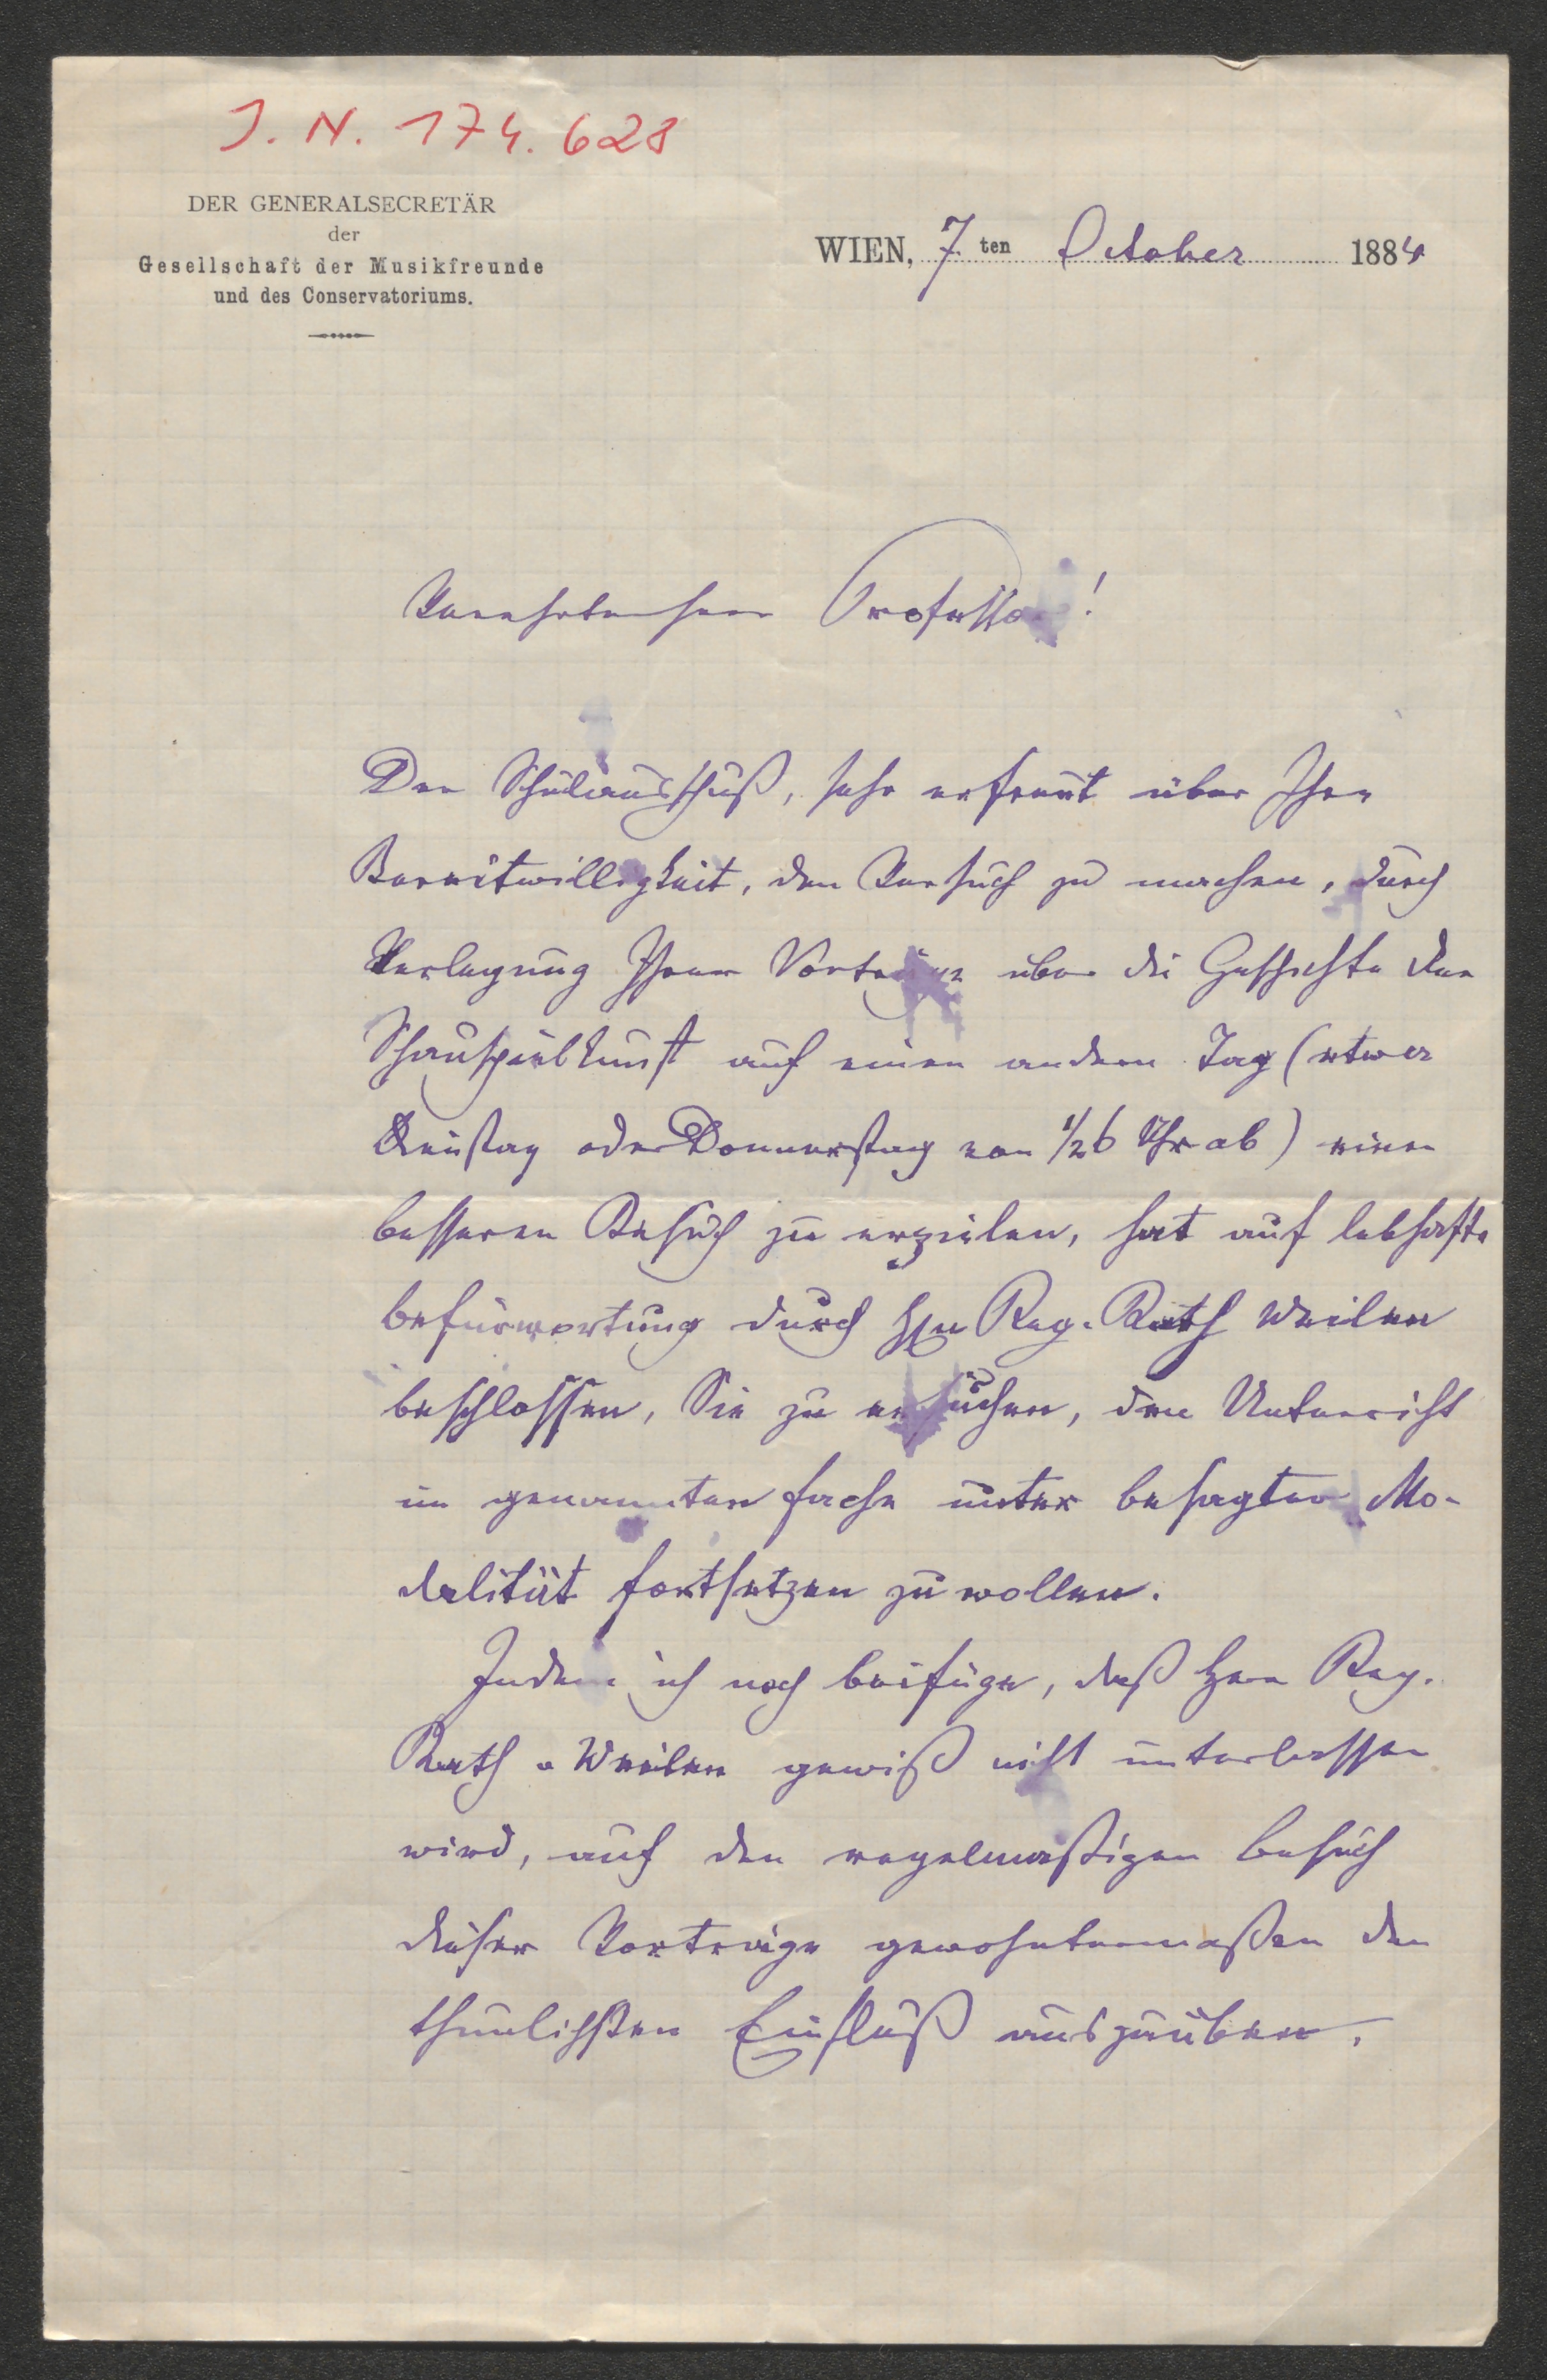 J. N. 174.628
DER GENERALSECRETÄR
der
Gesellschaft der Musikfreunde
und des Conservatoriums.
WIEN, 7. ten October 1884
Verehrter Herr Professor!
Der Schulausschuß, sehr erfreut über Ihre
Bereitwilligkeit, den Versuch zu machen, durch
Verlegung Ihrer Vorträge über die Geschichte der
Schauspielkunst auf einen andern Tag (etwa
Dienstag oder Donnerstag von 1/2 6 Uhr ab) einen
besseren Besuch zu erzielen, hat auf lebhafte
Befürwortung durch Hrn Reg. Rath Weilen
beschlossen, Sie zu ersuchen, den Unterricht
im genannten Fache unter besagter Mo-
dalität fortsetzen zu wollen.
Indem ich noch beifüge, daß Herr Reg.
Rath v Weilen gewiß nicht unterlassen
wird, auf den regelmäßigen Besuch
dieser Vorträge gewohntermaßen den
thunlichsten Einfluß auszuüben,